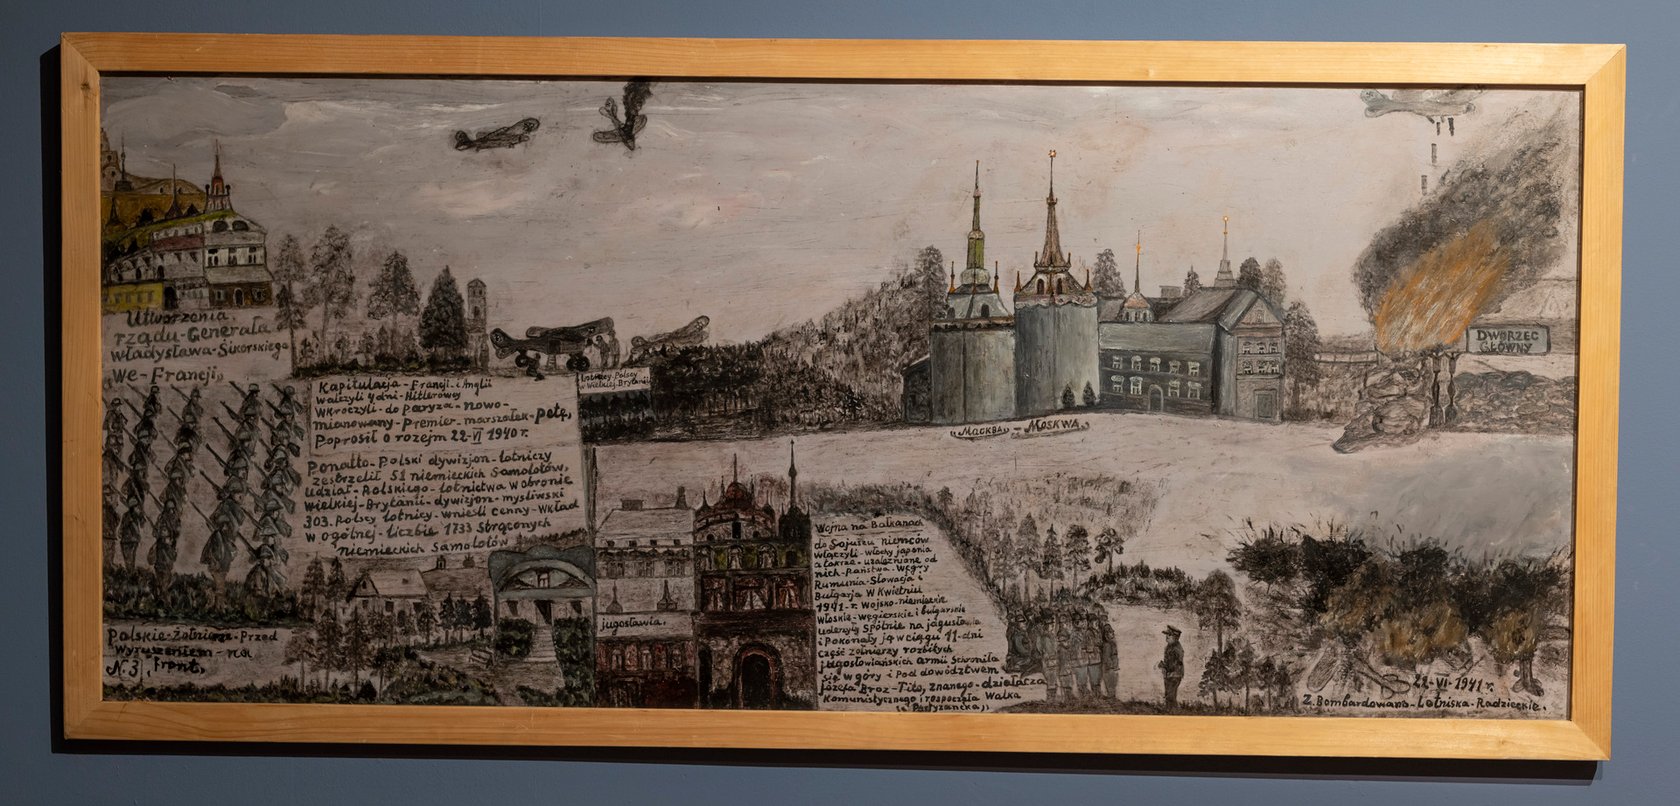 Utworzenia.
rządu-Generała
Władysława-Sikorskiego
„We-Francji„
Kapitulacja-Francji i Anglii
walczyli 4 dni-Hitlerowcy
Wkroczyli-do paryza-nowo-
mianowany-Premier-marszałek-Petę,
Poprosił o rozejm 22-VI 1940 r.
Ponatto-Polski dywizjon-lotniczy
zestrzelił 51 niemieckich Samolotów,
udział-Polskiego-lotnictwa w obronie
wielkiej-Brytanii-dywizjon-mysliwski
303. Polscy lotnicy-wnieśli cenny-wkład
w ogólnej-liczbie 1733 Strąconych
niemieckich Samolotów
Lotnicy Polscy
w Wielkiej-Brytanii
Polskie-Żołnierze-Przed
Wyruszeniem-na
N.3, Front,
jugosławia.
Wojna na Bałkanach
do Sojuszu niemców
włączyli-włochy japonia
a także-uzależnione od
nich-Państwa-Węgry
Rumunia-Słowacja i
Bulgarja w Kwietniu
1941-r. wojsko-niemieckie
włoskie-węgierskie i bulgarskie
uderzyły Spólnie na jagusławia
i Pokonały ją w ciągu 11-dni
część żołnierzy rozbitych
jugosłowiańskich armii Schroniła
się w góry i Pod dowództwem
józefa Broz-Tito, znanego-działacza
Komunistycznego i rozpoczęła Walka
„Partyzancka„
„Москва„-Moskwa„
DWORZEC
GŁÓWNY
22-VI-1941 r.
Z. Bombardowano-Lotniska-Radzieckie.